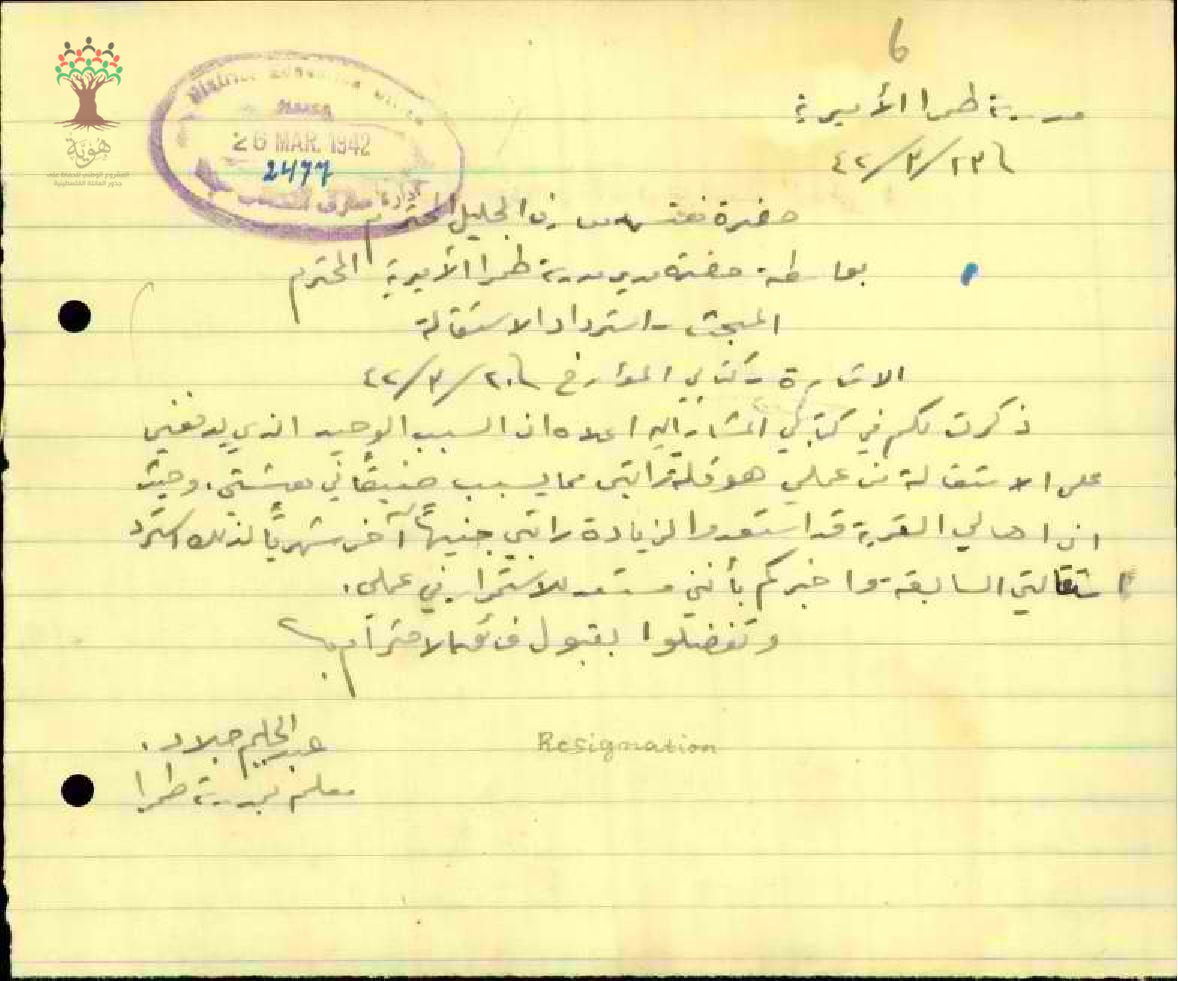 6
مدرسة طمرا الأميرية
٤٢/٣/٢٣
District Education Office
Haifa
26 MAR. 1942
2477
إدارة معارف
هويّة
المشروع الوطني للحفاظ على
جذور العائلة الفلسطينية
حضرة مفتش معارف الجليل المحترم
بواسطة حضرة مدير مدرسة طمرا الأميرية المحترم
المبحث - استرداد الاستقالة
الاشارة - كتابي المؤرخ ٤٢/٣/٢٠
ذكرت لكم في كتابي المشار اليه اعلاه ان السبب الوحيد الذي يدفعني
على الاستقالة من عملي هو قلة راتبي مما يسبب ضيقًا في معيشتي. وحيث
ان اهالي القرية قد استعدوا لزيادة راتبي جنيهًا آخر شهريًا لذلك استرد
استقالتي السابقة واخبركم بأنني مستعد للاستمرار في عملي.
وتفضلوا بقبول فائق الاحترام
عبد الحليم جلاد.
معلم بمدرسة طمرا
Resignation